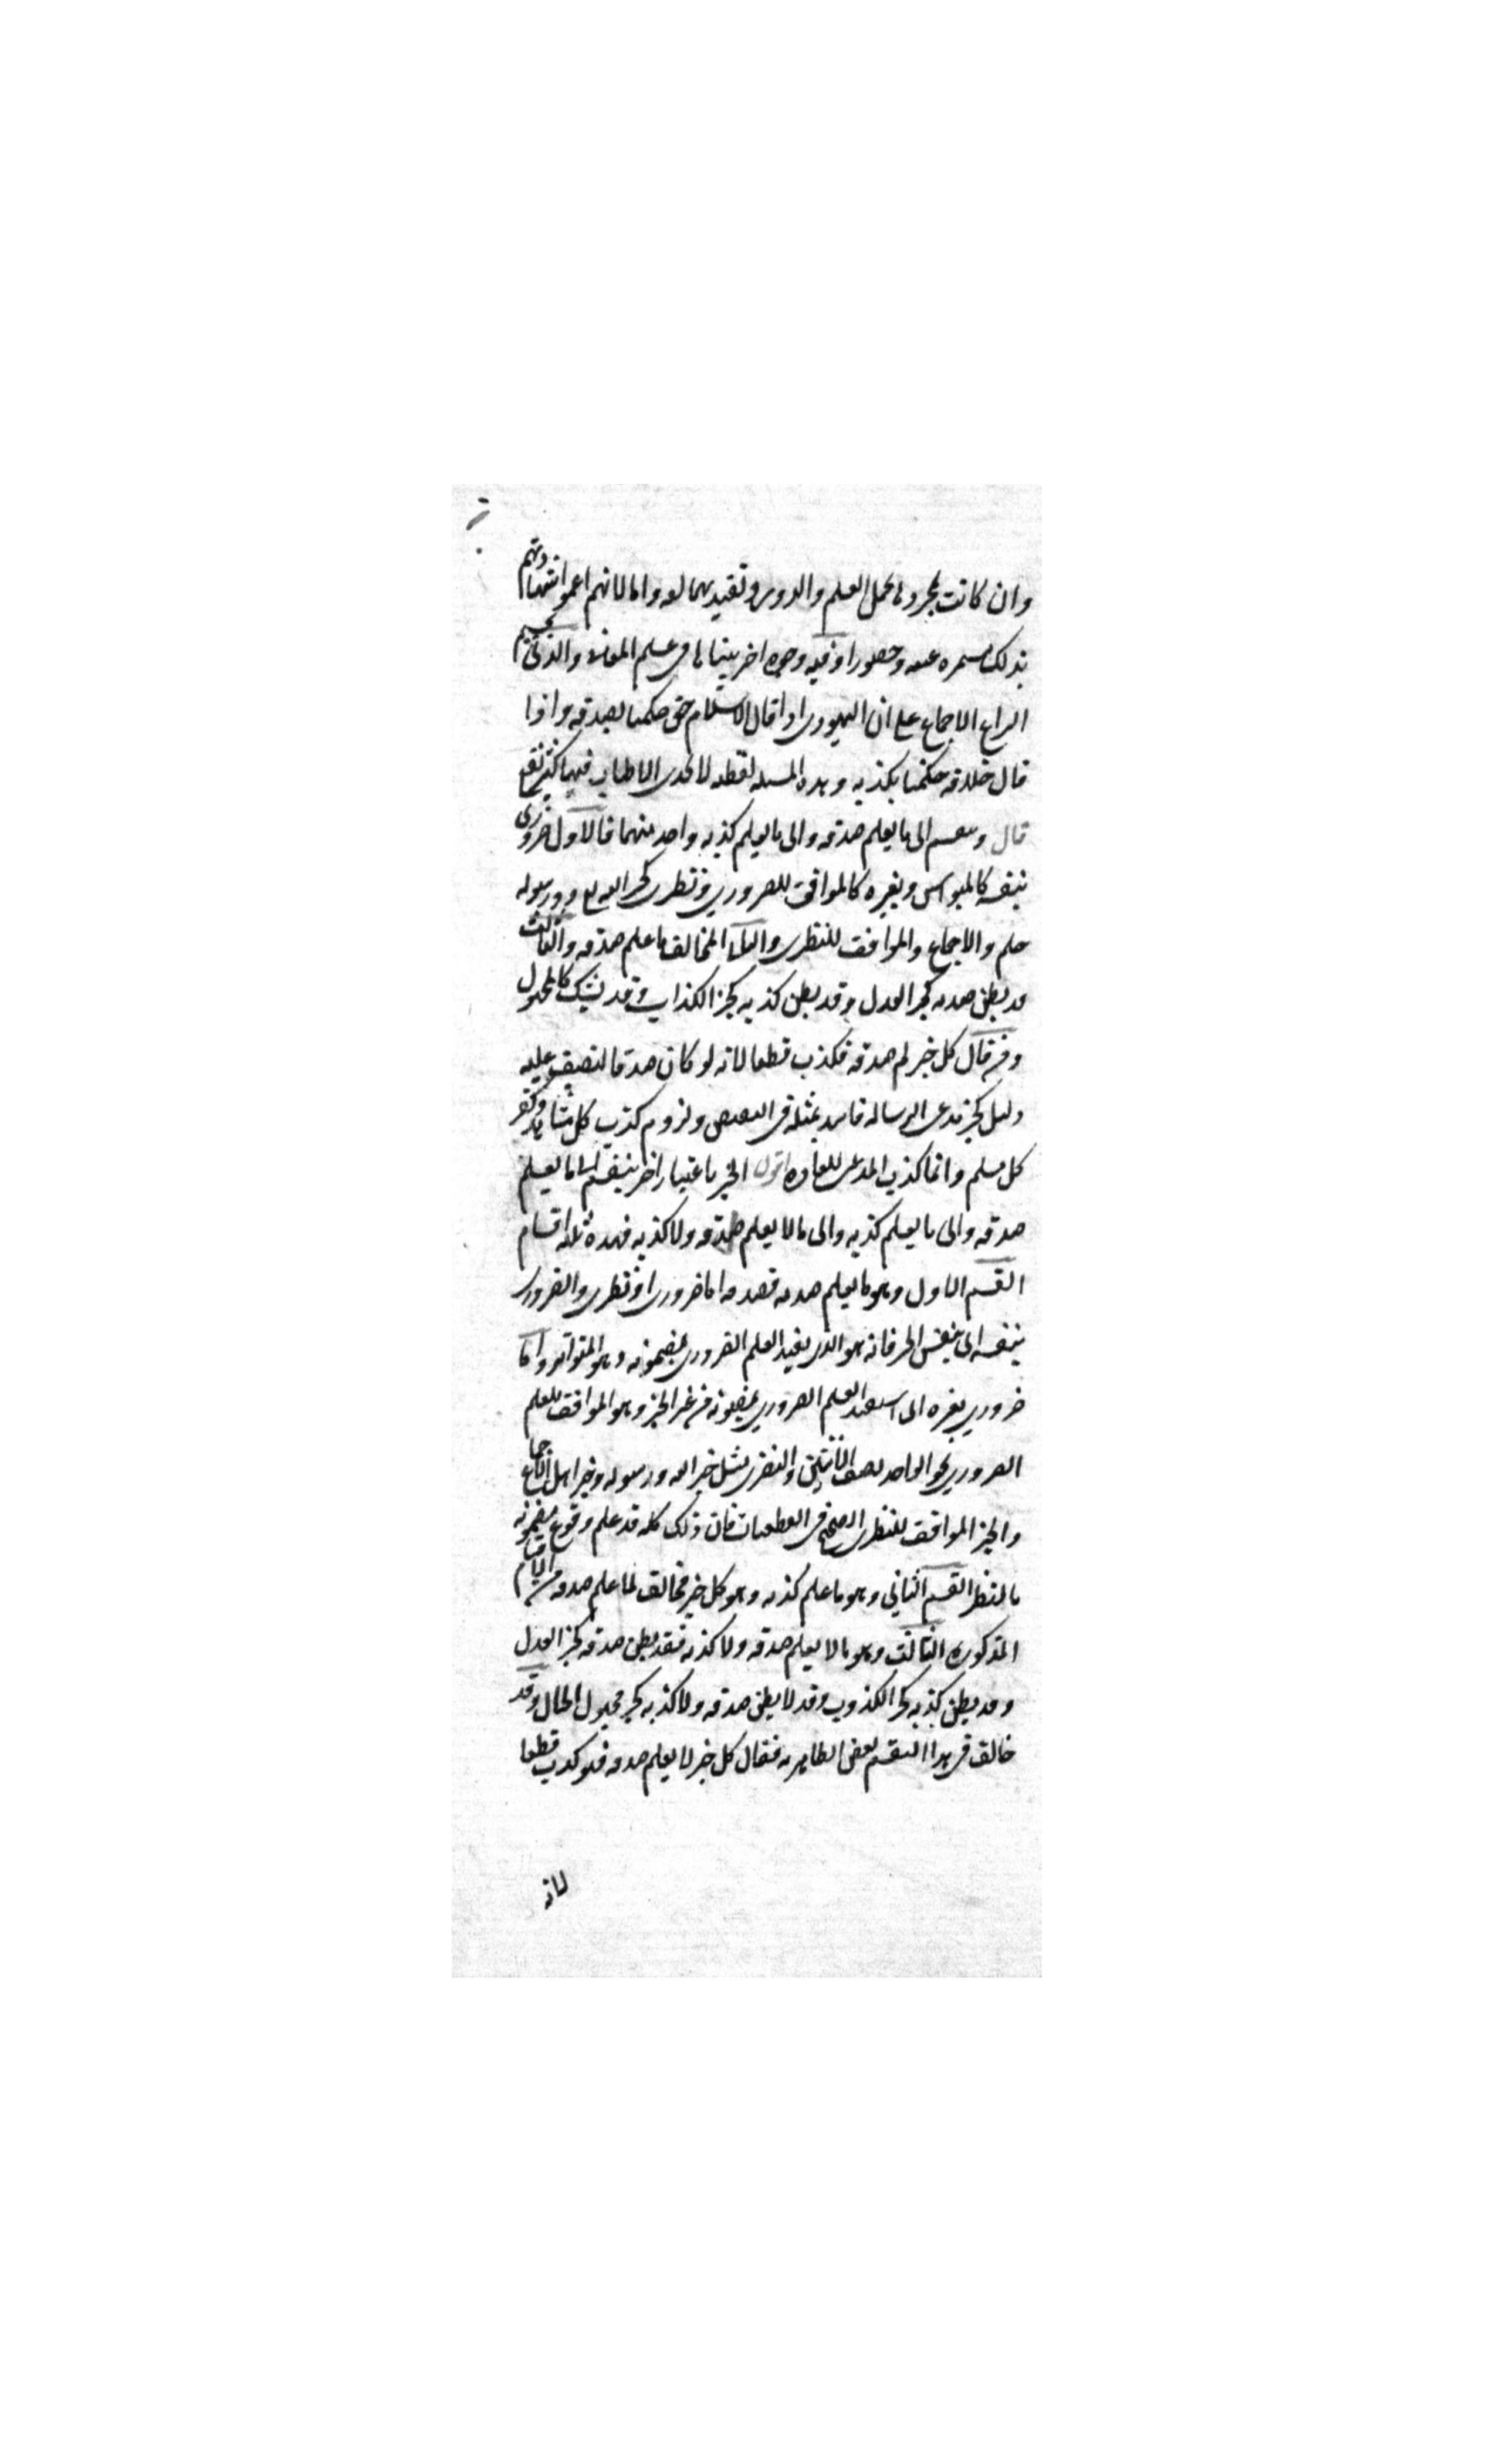 وان كانت مجرده لا يحمل العلم والدوس وتقييدهما له واما لانهم اعموا شهادتهم
بذلك مستمرة غيبه وحضورا وفيه وجوه اخر بيناها في علم المعاني والذي يحسم
الرابع الاجماع على ان اليهودي اذا قال الاسلام حق حكمنا بصدقه واذا
قال خلافه حكمنا بكذبه وهذه المسئله لفظيه لا يجدي الاطناب فيها كثير نفع
قال وينقسم الى ما يعلم صدقه والى ما يعلم كذبه واحد منهما فالاول ضروري
بنفسه كالمتواتر وبغيره كالموافق للضروري ونظري كخبر الله تع ورسوله
صلعم والاجماع والموافق للنظري والثاني المخالف ما علم صدقه والثالث
قد يظن صدقه كخبر العدل وقد يظن كذبه كخبر الكذاب وقد يشك كالمجهول
ومن قال كل خبر لم صدقه فكذب قطعا لانه لو كان صدقا لنصب عليه
دليل كخبر مدعي الرساله فاسد بمثله في النقيض ولزوم كذب كل شاهد وكفر
كل مسلم وانما كذب المدعي للعاده اقول الخبر باعتبار اخر ينقسم الى ما يعلم
صدقه والى ما يعلم كذبه والى ما لا يعلم صدقه ولا كذبه فهذه ثلثه اقسام
القسم الاول وهو ما يعلم صدقه فصدقه اما ضروري او نظري والضروري
بنفسه اي بنفس الخبر فانه هو الذي يفيد العلم الضروري بمضمونه وهو المتواتر واما
ضروري بغيره اي استفيد العلم الضروري بمضمونه من غير الخبر وهو الموافق للعلم
الضروري نحو الواحد نصف الاثنين والنظري مثل خبر الله ورسوله وخبر اهل الاجماع
والخبر الموافق للنظر الصحيح في القطعيات فان ذلك كله قد علم وقوع مضمونه
بالنظر القسم الثاني وهو ما علم كذبه وهو كل خبر مخالف لما علم صدقه من الاقسام
المذكوره الثالث وهو ما لا يعلم صدقه ولا كذبه فقد يظن صدقه كخبر العدل
وقد يظن كذبه كخبر الكذوب وقد لا يظن صدقه ولا كذبه كخبر مجهول الحال وقد
خالف في هذا التقسيم بعض الظاهريه فقال كل خبر لا يعلم صدقه فهو كذب قطعا
لانه